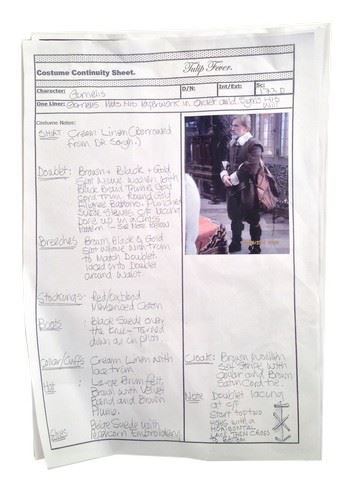 Costume Continuity Sheet.
Tulip Fever.
Character: Cornelis
D/N:
Int/Ext:
Sc:
One Liner: Cornelis Puts His Paperwork in Order and Signs His Will
Costume Notes:
Shirt: Cream Linen (borrowed
from DR Sorgh.)
Doublet: Brown + Black + Gold
Black Braid Trim & Gold
Cord Trim. Round Gold
Filigree Buttons.
Suede Sleeves. C/F lacing
Done up in a Criss
Pattern - See Note Below
Breeches: Brown Black & Gold
with trim
to Match Doublet.
laced onto Doublet
around waist.
Stockings: Red/Ribbed
Mercerised Cotton
Boots: Black Suede over
the knee - Turned
down as in photo
Collar/Cuffs: Cream Linen with
lace trim
Hat: Large Brim felt,
Brown with Velvet
Band and Brown
Plume.
Gloves: Beige Suede with
Embroidery
Cloak: Brown Woollen
Self Stripe with
Collar and Brown
Satin Cord tie.
Note: Doublet lacing
at C/F
Start top two
holes with a
HORIZONTAL
LACE THEN CROSS
TO BOTTOM